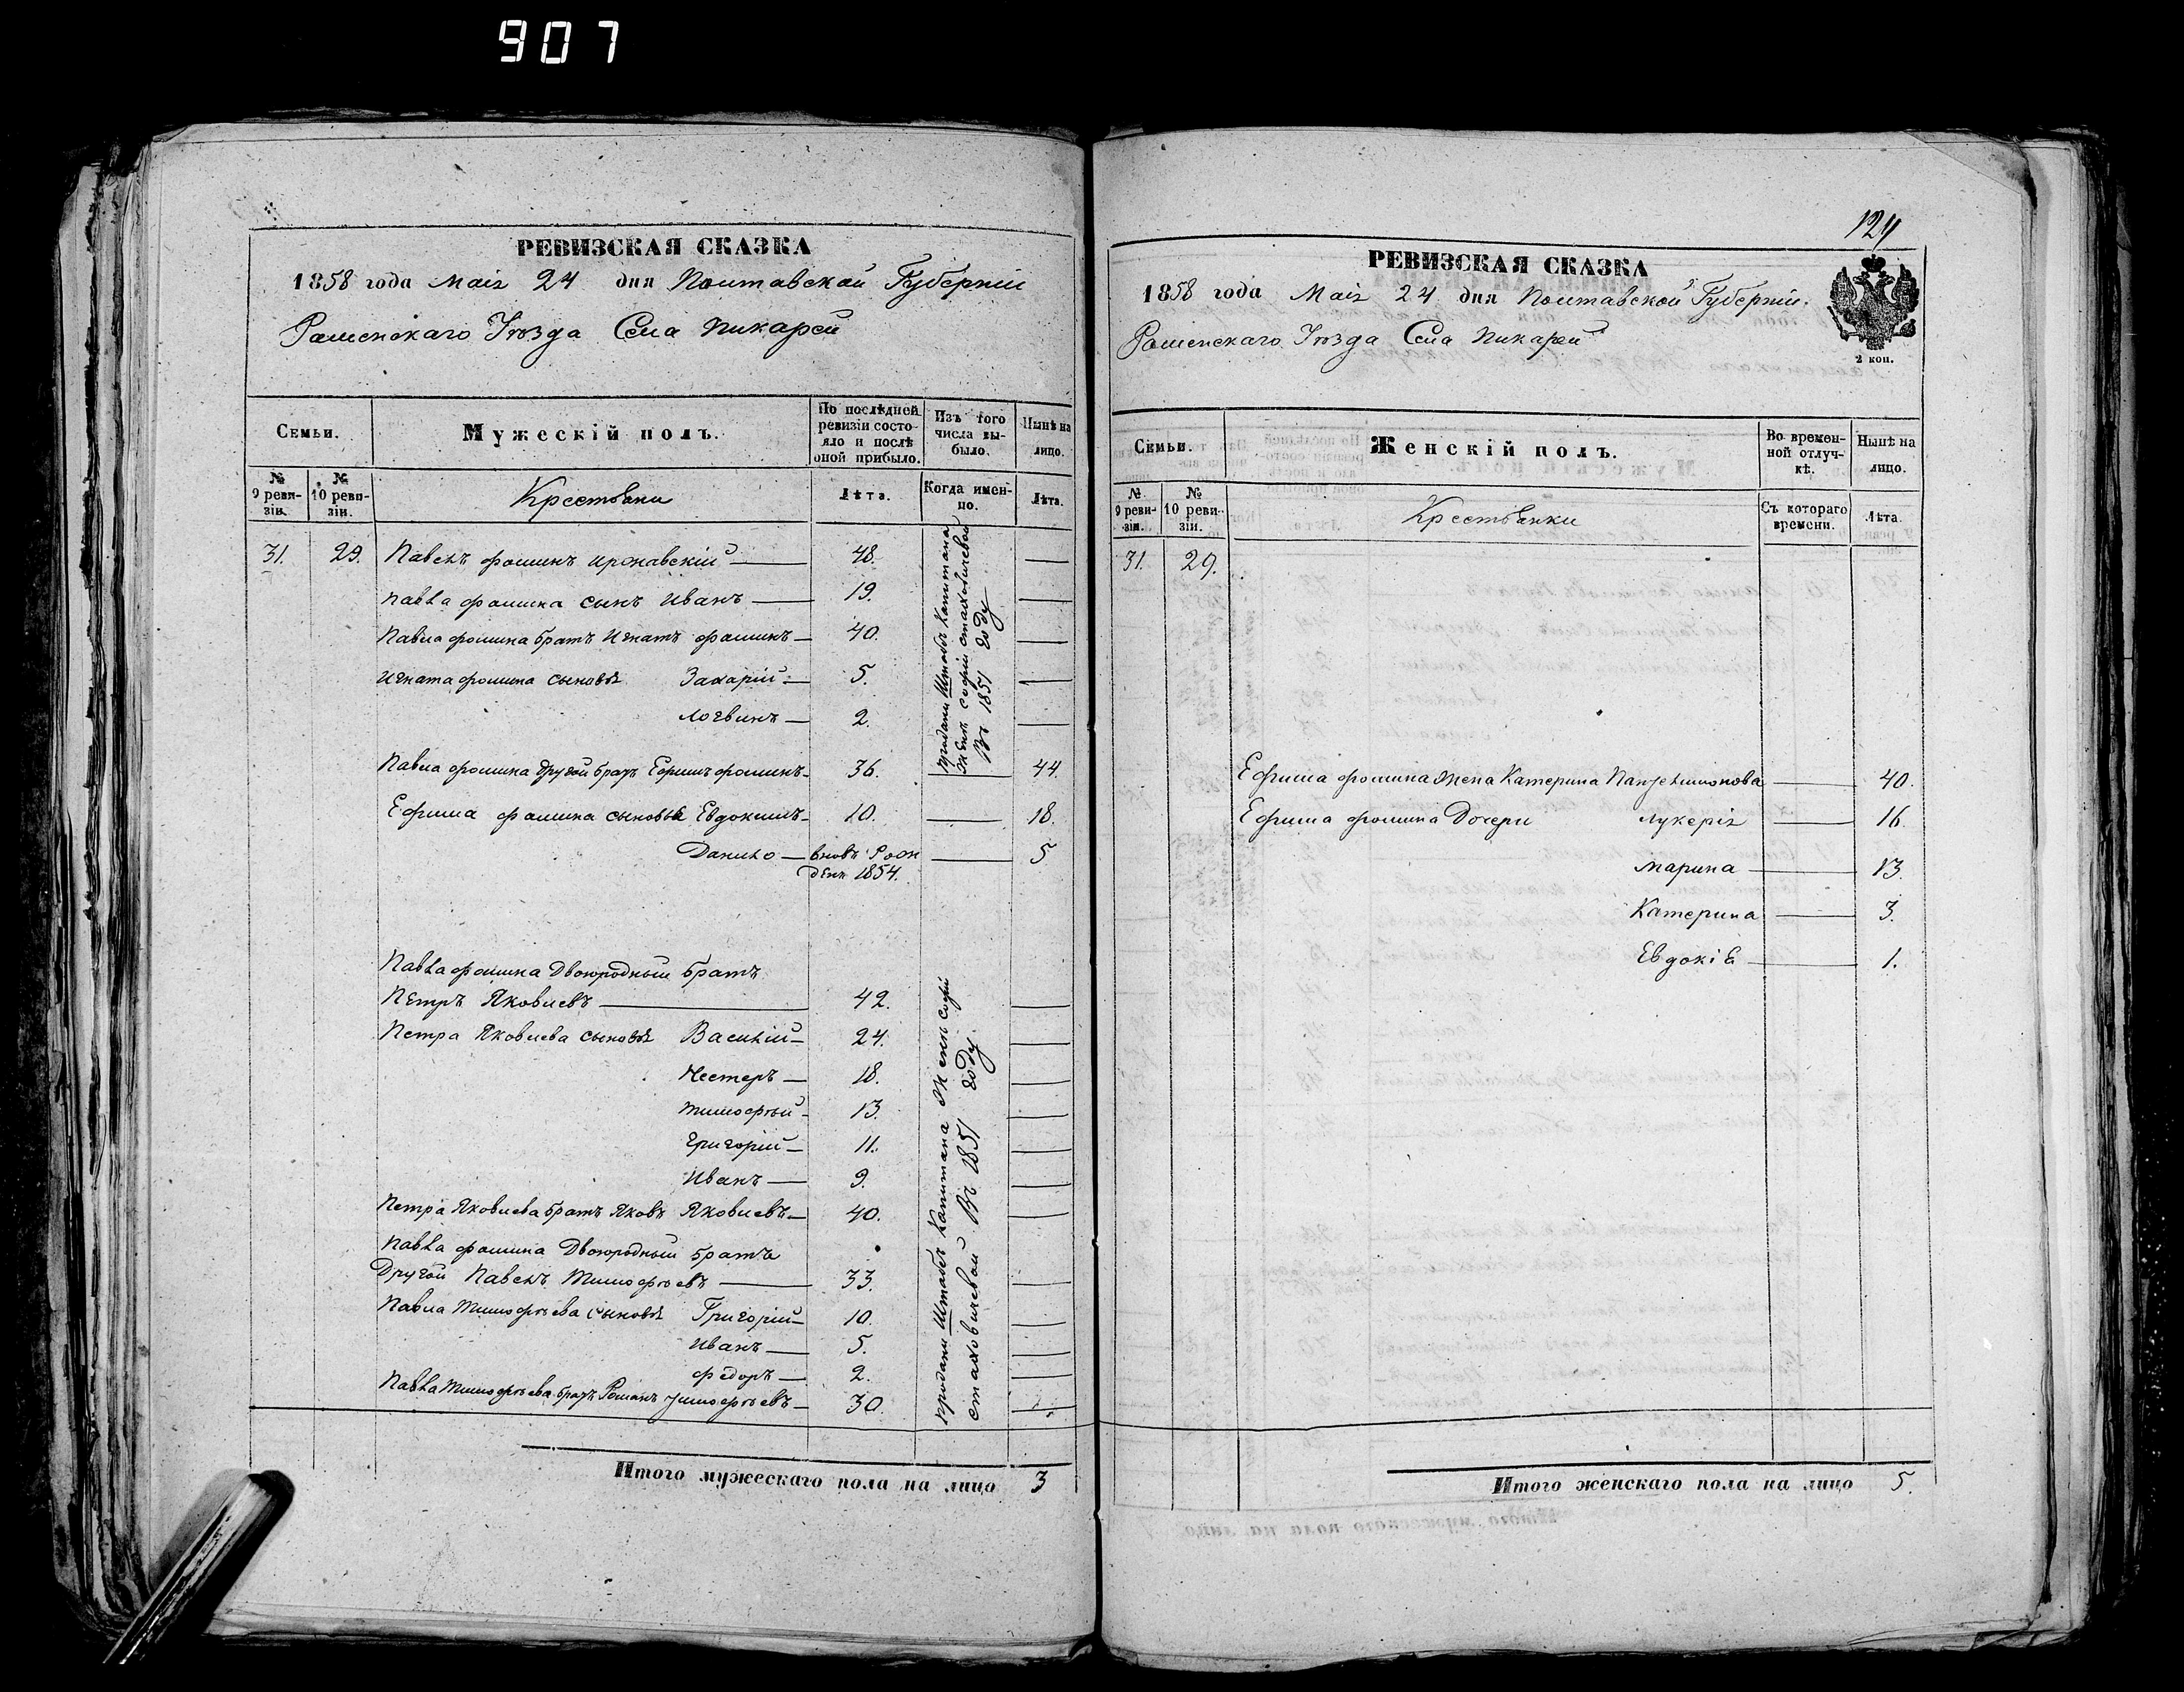 907
РЕВИЗСКАЯ СКАЗКА
1858 года Маія 24 дня Полтавской Губерніи
Роменскаго Уѣзда Села Пикарей
Семьи.
Мужескій полъ.
По послѣдней ревизіи состояло и послѣ оной прибыло.
Изъ того числа выбыло.
Нынѣ на лицо.
№ 9 ревизіи.
№ 10 ревизіи.
Крестьяни
Лѣта.
Когда именно.
Лѣта.
31. 29. Павелъ Фоминъ Иржавскій — 48. —
Павла Фомина сынъ Иванъ — 19. —
Павла Фомина братъ Игнатъ Фоминъ — 40. —
Игната Фомина сыновья Захарій — 5. —
Логвинъ — 2. —
проданы Штабсъ Капитана
Женѣ Софіи Стаховичевой
Въ 1851 году
Павла Фомина другой братъ Ефимъ Фоминъ — 36. — 44.
Ефима Фомина сыновья Евдокимъ — 10. — 18.
Данило — вновь рож — 5
ден 1854.
Павла Фомина двоюродный братъ
Петръ Яковлевъ — 42. —
Петра Яковлева сыновья Василій — 24. —
Нестеръ — 18. —
Тимофѣй — 13. —
Григорій — 11. —
Иванъ — 9. —
Петра Яковлева братъ Яковъ Яковлевъ — 40. —
Павла Фомина двоюродный братъ
Другой Павелъ Тимофѣевъ — 33. —
Павла Тимофѣева сыновья Григорій — 10. —
Иванъ — 5. —
Федоръ — 2. —
Павла Тимофѣева братъ Романъ Тимофѣевъ — 30. —
проданы Штабсъ Капитана Женѣ Софіи
Стаховичевой Въ 1851 году.
Итого мужескаго пола на лицо 3
124
РЕВИЗСКАЯ СКАЗКА
1858 года Маія 24 дня Полтавской Губерніи.
Роменскаго Уѣзда Села Пикарей
2 коп.
Семьи.
Женскій полъ.
Во временной отлучкѣ.
Нынѣ на лицо.
№ 9 ревизіи.
№ 10 ревизіи.
Крестьянки
Съ котораго времени.
Лѣта.
31. 29.
Ефима Фомина жена Катерина Пантелимонова — 40.
Ефима Фомина Дочери Лукерія — 16.
Марина — 13.
Катерина — 3.
Евдокія — 1.
Итого женскаго пола на лицо 5.